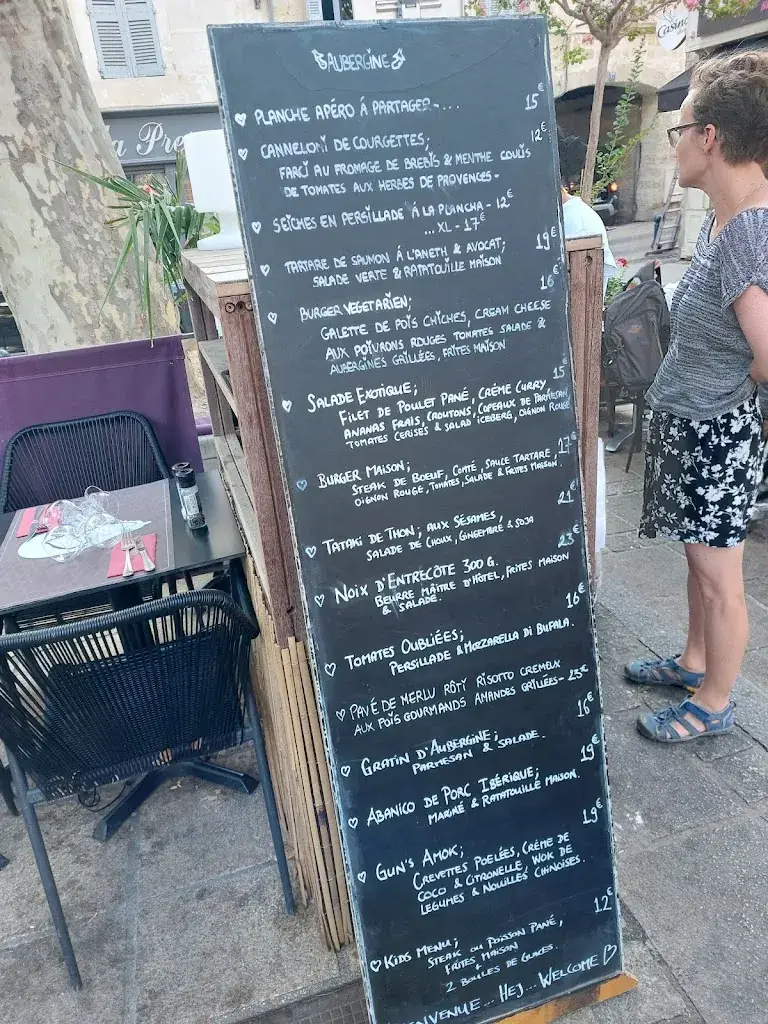 Casino
la Pre
AUBERGINE
PLANCHE APÉRO À PARTAGER - . . . . 15€
CANNELONI DE COURGETTES; 12€
FARCI AU FROMAGE DE BREBIS & MENTHE COULIS
DE TOMATES AUX HERBES DE PROVENCES -
SEÏCHES EN PERSILLADE À LA PLANCHA - 12€
... XL - 17€
TARTARE DE SAUMON À L'ANETH & AVOCAT; 19€
SALADE VERTE & RATATOUILLE MAISON
BURGER VEGETARIEN; 16€
GALETTE DE POIS CHICHES, CREAM CHEESE
AUX POIVRONS ROUGES TOMATES SALADE &
AUBERGINES GRILLÉES, FRITES MAISON
SALADE EXOTIQUE; 15€
FILET DE POULET PANÉ, CRÈME CURRY,
ANANAS FRAIS, CROUTONS, COPEAUX DE PARMESAN
TOMATES CERISES & SALAD ICEBERG, OIGNON ROUGE
BURGER MAISON; 17€
STEAK DE BOEUF, COMTÉ, SAUCE TARTARE,
OIGNON ROUGE, TOMATES, SALADE & FRITES MAISON.
TATAKI DE THON; AUX SÉSAMES, 21€
SALADE DE CHOUX, GINGEMBRE & SOJA
NOIX D'ENTRECÔTE 300 G. 23€
BEURRE MAÎTRE D'HÔTEL, FRITES MAISON
& SALADE.
TOMATES OUBLIÉES; 16€
PERSILLADE & MOZZARELLA DI BUFALA.
PAVÉ DE MERLU RÔTI RISOTTO CREMEUX
AUX POIS GOURMANDS AMANDES GRILLÉES - 23€
GRATIN D'AUBERGINE; 16€
PARMESAN & SALADE.
ABANICO DE PORC IBÉRIQUE; 19€
MARINÉ & RATATOUILLE MAISON.
GUN'S AMOK; 19€
CREVETTES POELÉES, CRÈME DE
COCO & CITRONELLE, WOK DE
LEGUMES & NOUILLES CHINOISES.
KIDS MENU; 12€
STEAK OU POISSON PANÉ,
FRITES MAISON
+
2 BOULES DE GLACES.
ENVENUE... HEJ... WELCOME